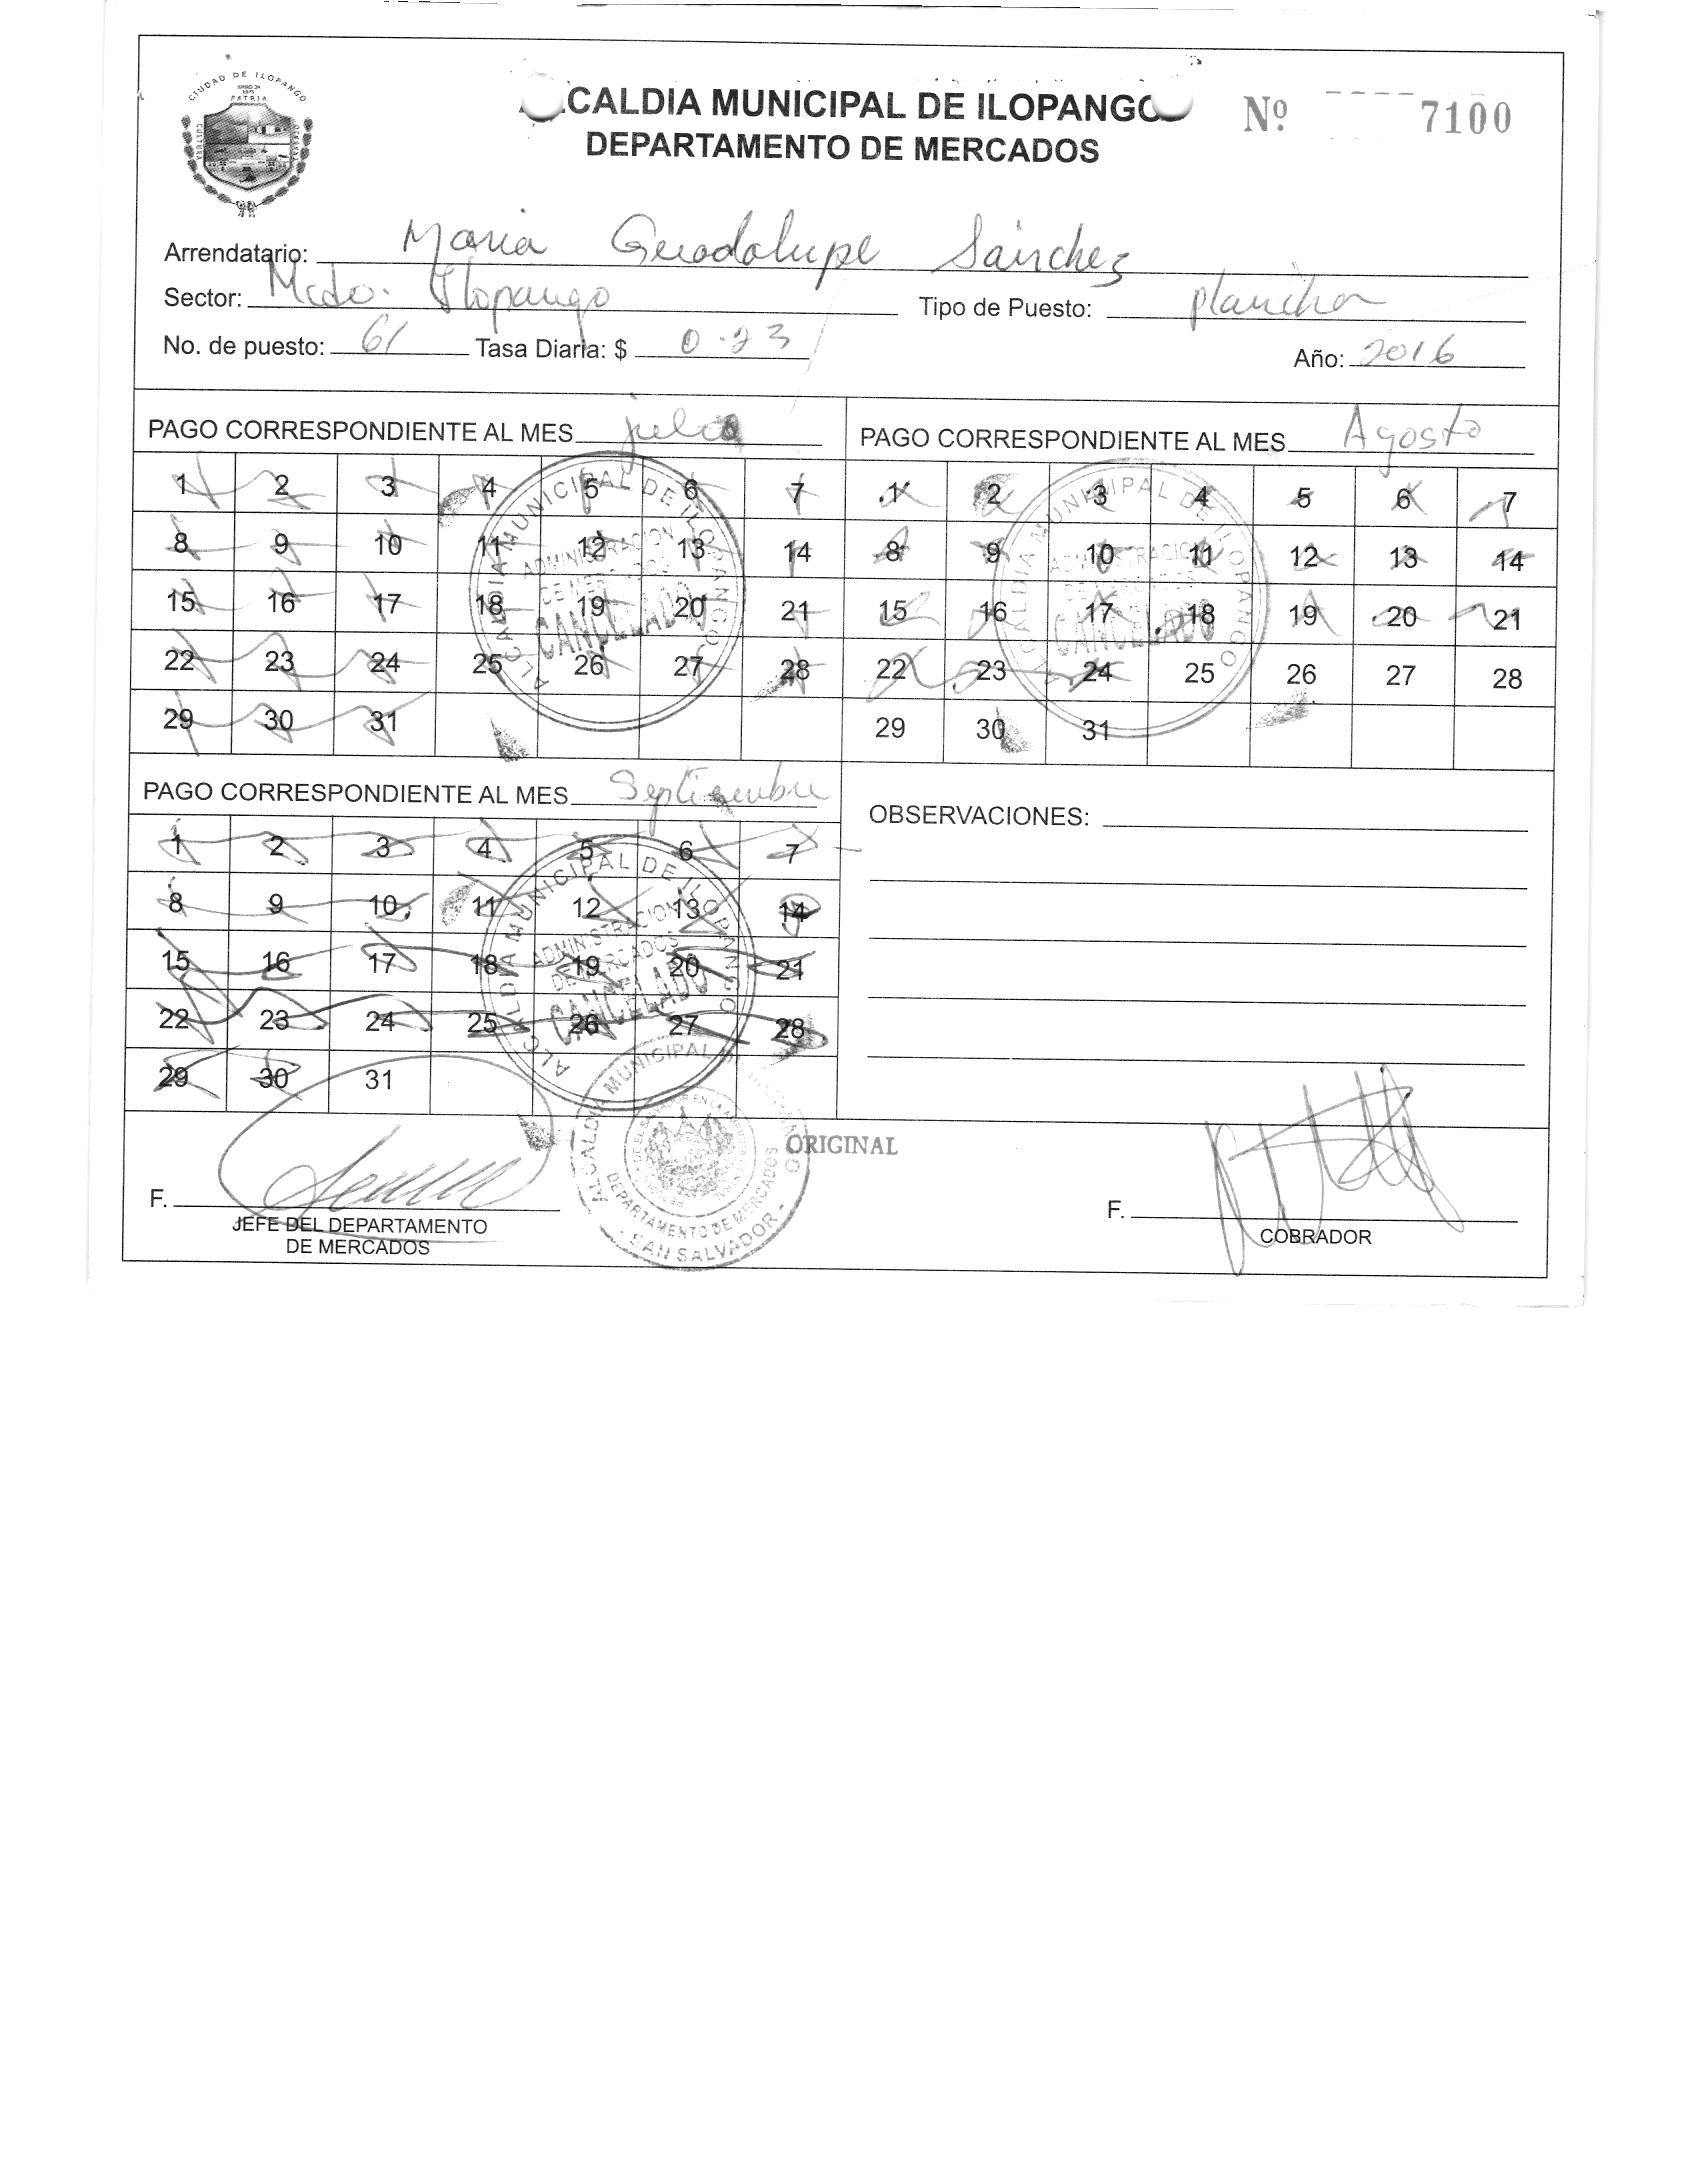 CIUDAD DE ILOPANGO
PATRIA
CULTURA
CALDIA MUNICIPAL DE ILOPANGO
DEPARTAMENTO DE MERCADOS
Nº 7100
Arrendatario: Maria Guadalupe Sánchez
Sector: Mcdo. Ilopango Tipo de Puesto: plancha
No. de puesto: 61 Tasa Diaria: $ 0.23 Año: 2016
PAGO CORRESPONDIENTE AL MES julio
1 2 3 4 5 6 7
8 9 10 11 12 13 14
15 16 17 18 19 20 21
22 23 24 25 26 27 28
29 30 31
ALCALDIA MUNICIPAL DE ILOPANGO
ADMINISTRACION
DE MERCADOS
CANCELADO
PAGO CORRESPONDIENTE AL MES Agosto
1 2 3 4 5 6 7
8 9 10 11 12 13 14
15 16 17 18 19 20 21
22 23 24 25 26 27 28
29 30 31
ALCALDIA MUNICIPAL DE ILOPANGO
ADMINISTRACION
CANCELADO
PAGO CORRESPONDIENTE AL MES Septiembre
1 2 3 4 5 6 7
8 9 10 11 12 13 14
15 16 17 18 19 20 21
22 23 24 25 26 27 28
29 30 31
ALCALDIA MUNICIPAL DE ILOPANGO
ADMINISTRACION
DE MERCADOS
CANCELADO
OBSERVACIONES:
ALCALDIA MUNICIPAL
DEPARTAMENTO DE MERCADOS
- SAN SALVADOR -
ORIGINAL
F.
JEFE DEL DEPARTAMENTO
DE MERCADOS
F.
COBRADOR